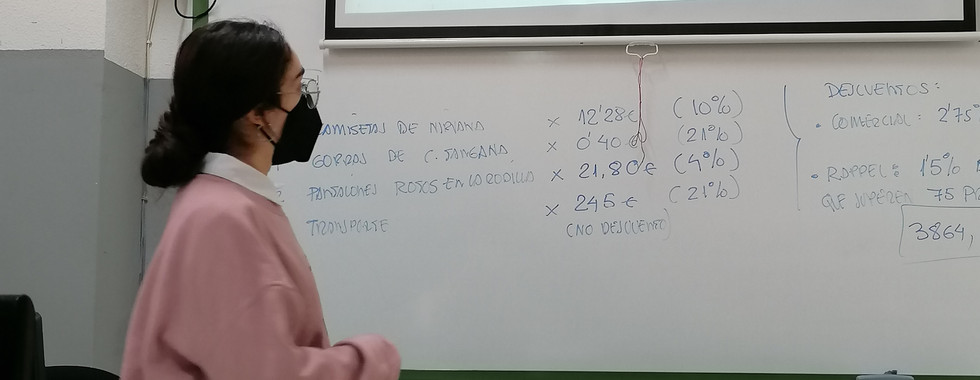 CAMISETAS DE NIRVANA x 12'28€ (10%)
GORRAS DE C. TANGANA x 0'40€ (21%)
PANTALONES ROTOS EN LA RODILLA x 21,80€ (4%)
TRANSPORTE x 245€ (21%)
(NO DESCUENTO)
DESCUENTOS:
• COMERCIAL: 2'75
• RAPPEL: 1'5%
QUE SUPEREN 75
3864,